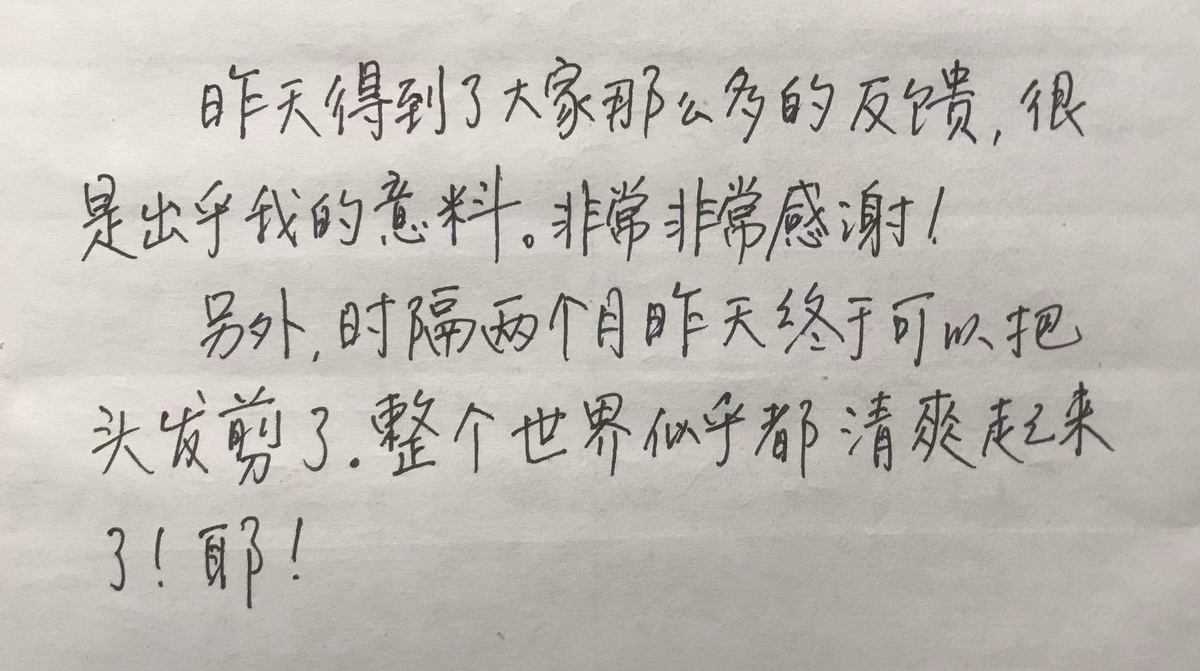 昨天得到了大家那么多的反馈,很
是出乎我的意料。非常非常感谢!
另外,时隔两个月昨天终于可以把
头发剪了.整个世界似乎都清爽起来
了!耶!